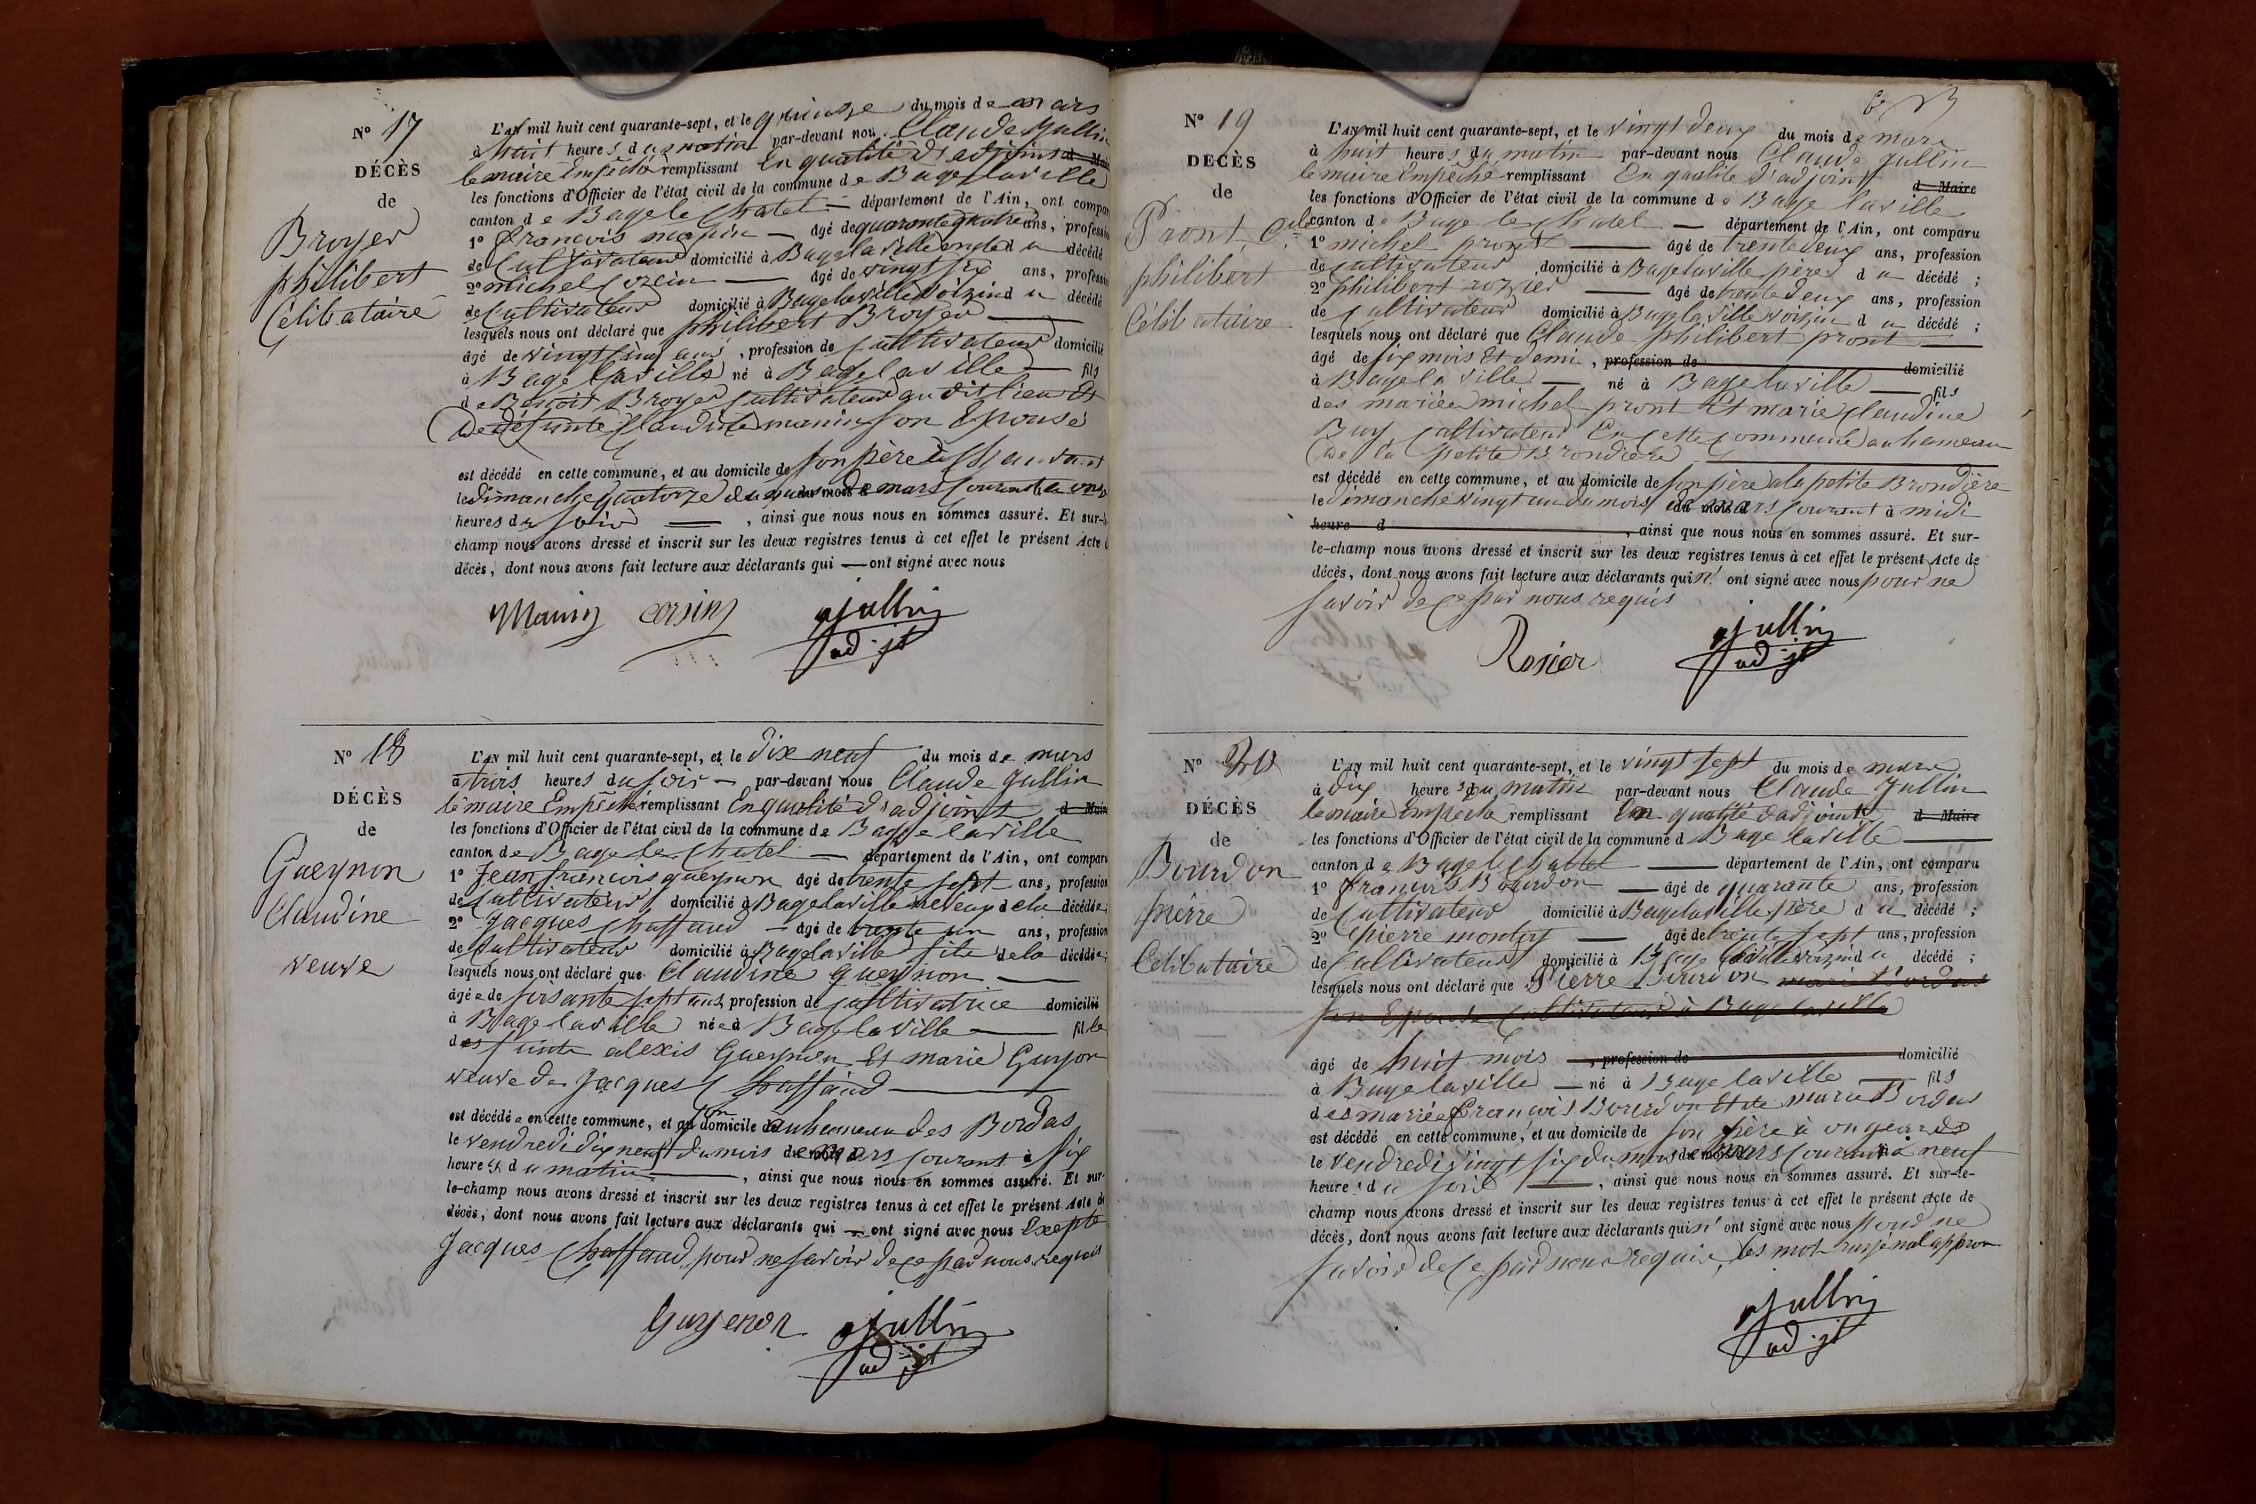 N° 17
DÉCÈS
de
Broyer
philibert
Célibataire
L'AN mil huit cent quarante-sept, et le quinze du mois de mars
à huit heures du matin par-devant nou Claude Jullin
le maire Empêché remplissant En qualité d'adjoint d Maire
les fonctions d'Officier de l'état civil de la commune de Bagé laville
canton de Bagé le Chatel — département de l'Ain, ont compar
1° françois manin — âgé de quarante quatre ans, profession
de Cultivateur domicilié à Bagé laville oncle d u décédé
2° michel Corcin — âgé de vingt six ans, profession
de Cultivateur domicilié à Bagé laville voisin d u décédé
lesquels nous ont déclaré que philibert Broyer
âgé de vingt cinq ans, profession de Cultivateur domicilié
à Bagé laville né à Bagé laville — fils
de Benoit Broyer Cultivateur au dit lieu Et
de défunte Claudine manin son Epouse
est décédé en cette commune, et au domicile de son père à
le dimanche quatorze du mois de mars Courant à onze
heures du soir — , ainsi que nous nous en sommes assuré. Et sur-
champ nous avons dressé et inscrit sur les deux registres tenus à cet effet le présent Acte
décès, dont nous avons fait lecture aux déclarants qui — ont signé avec nous
Manin Corsin Jullin
adjt
N° 18
DÉCÈS
de
Gueynon
Claudine
veuve
L'AN mil huit cent quarante-sept, et le dix neuf du mois de mars
à trois heures du soir — par-devant nous Claude Jullin
le maire Empêché remplissant En qualité d'adjoint d Maire
les fonctions d'Officier de l'état civil de la commune de Bagé laville
canton de Bagé le Chatel — département de l'Ain, ont comparu
1° Jean francois gueynon âgé de trente sept ans, profession
de Cultivateur domicilié à Bagé laville neveu de la décédée;
2° Jacques Chaffaud — âgé de trente un ans, profession
de Cultivateur domicilié à Bagé laville fils de la décédée;
lesquels nous ont déclaré que Claudine Gueynon —
âgée de soixante sept ans, profession de Cultivatrice domicilié
à Bagé laville née à Bagé laville — fille
des funts alexis Gueynon Et marie Guyon
veuve de Jacques Chaffaud —
est décédée en cette commune, et au domicile son au hameau des Bordas
le vendredi dix neuf du mois de mars Courant à six
heures du matin — , ainsi que nous nous en sommes assuré. Et sur-
le-champ nous avons dressé et inscrit sur les deux registres tenus à cet effet le présent Acte de
décès, dont nous avons fait lecture aux déclarants qui — ont signé avec nous Excepté
Jacques Chaffaud pour ne savoir de ce par nous requis
Guyenon Jullin
adjt
N° 19
DÉCÈS
de
Pront, Cde
philibert
Célibataire
L'AN mil huit cent quarante-sept, et le vingt deux du mois de mars
à huit heures du matin par-devant nous Claude Jullin
le maire Empêché remplissant En qualité d'adjoint d Maire
les fonctions d'Officier de l'état civil de la commune de Bagé laville
canton de Bagé le Chatel — département de l'Ain, ont comparu
1° michel pront — âgé de trente deux ans, profession
de Cultivateur, domicilié à Bagé laville père d u décédé;
2° philibert rozier — âgé de trente deux ans, profession
de Cultivateur domicilié à Bagé laville voisin d u décédé;
lesquels nous ont déclaré que Claude philibert pront —
âgé de six mois Et demi, profession de domicilié
à Bagé laville — né à Bagé laville — fils
des mariés michel pront Et marie Claudine
Buy Cultivateur En Cette Commune au hameau
de la petite Brondière
est décédé en cette commune, et au domicile de son père à la petite Brondière
le dimanche vingt un du mois de mars Courant à midi
heure d , ainsi que nous nous en sommes assuré. Et sur-
le-champ nous avons dressé et inscrit sur les deux registres tenus à cet effet le présent Acte de
décès, dont nous avons fait lecture aux déclarants qui n'ont signé avec nous pour ne
savoir de ce par nous requis
Rosier Jullin
adjt
N° 20
DÉCÈS
de
Bourdon
pierre
Célibataire
L'AN mil huit cent quarante-sept, et le vingt sept du mois de mars
à dix heures du matin par-devant nous Claude Jullin
le maire Empêché remplissant En qualité d'adjoint d Maire
les fonctions d'Officier de l'état civil de la commune d Bagé laville —
canton de Bagé le Chattel — département de l'Ain, ont comparu
1° francois Bourdon — âgé de quarante ans, profession
de Cultivateur domicilié à Bagé laville père d u décédé;
2° pierre montoy — âgé de trente sept ans, profession
de Cultivateur domicilié à Bagé laville voisin d u décédé;
lesquels nous ont déclaré que Pierre Bourdon marie Bordas
son Epouse Cultivateur à Bagé laville
âgé de huit mois , profession de domicilié
à Bagé laville — né à Bagé laville — fils
des mariés francois Bourdon Et de marie Bordas
est décédé en cette commune, et au domicile de son père à
le vendredi vingt six du mois de mars Courant à neuf
heures du soir — , ainsi que nous nous en sommes assuré. Et sur-le-
champ nous avons dressé et inscrit sur les deux registres tenus à cet effet le présent Acte de
décès, dont nous avons fait lecture aux déclarants qui n'ont signé avec nous pour ne
savoir de ce par nous requis, les mots
Jullin
adjt